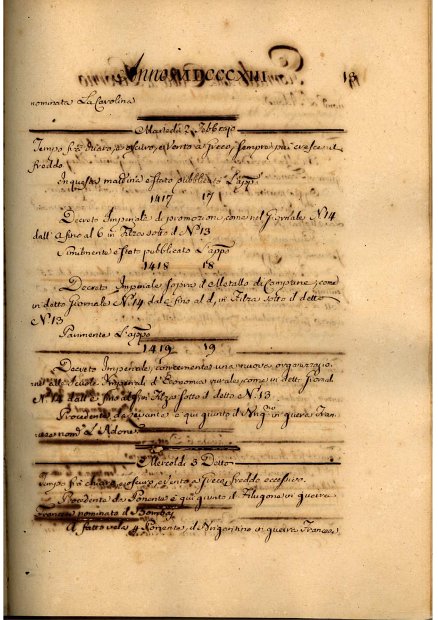 Anno MDCCCXIII 13
nominata La Carolina
Martedì 2 Febbrajo
Tempo frà chiaro, e oscuro, e Vento a Greco, sempre più cresce il
freddo
In questa mattina è stato pubblicato L'app.
1417 17
Decreto Imperiale di promozioni, come nel Giornale N. 14
dall' A fino al 6 in Filza sotto d. N. 13
Similmente è stato pubblicato L'app.
1418 18
Decreto Imperiale sopra il Metallo di Campane, come
in detto Giornale N. 14 dal c fino al d, in Filza sotto d. detto
N. 13
Parimente L'app.
1419 19
Decreto Imperiale, concernente una nuova organizzazio-
ne alle Scuole Imperial d'Economia rurale, come in dett. Giornal
N. 14 dall' e fino al in Filza sotto d. detto N. 13
Procedente da Levante è qui giunto d. Brig. in guerra Fran-
cese nom. L'Adone
Mercoldì 3 Detto
Tempo frà chiaro, e oscuro, e vento a Greco, freddo eccessivo.
Procedente da Ponente è qui giunto il Filugone in guerra
Francese nominato il Bombay
A fatto vela p. Ponente, il Brigantino in guerra Francese,